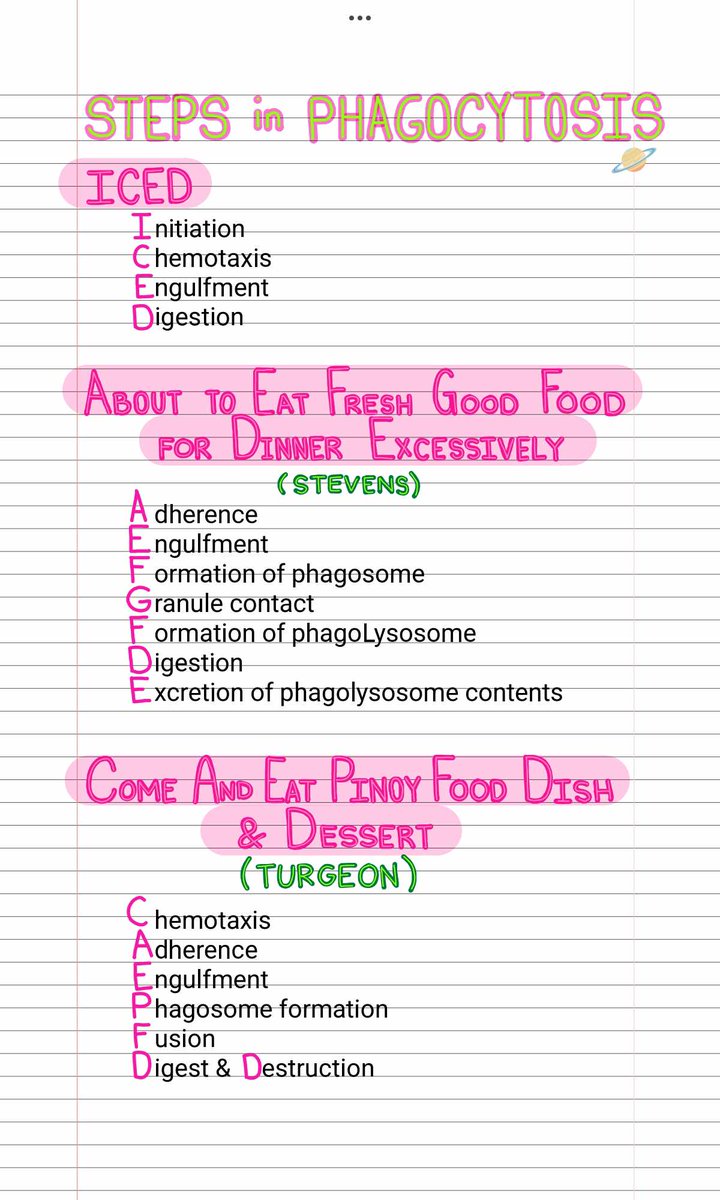 STEPS in PHAGOCYTOSIS
ICED
Initiation
Chemotaxis
Engulfment
Digestion
ABOUT TO EAT FRESH GOOD FOOD
FOR DINNER EXCESSIVELY
(STEVENS)
Adherence
Engulfment
Formation of phagosome
Granule contact
Formation of phagoLysosome
Digestion
Excretion of phagolysosome contents
COME AND EAT PINOY FOOD DISH
& DESSERT
(TURGEON)
Chemotaxis
Adherence
Engulfment
Phagosome formation
Fusion
Digest & Destruction